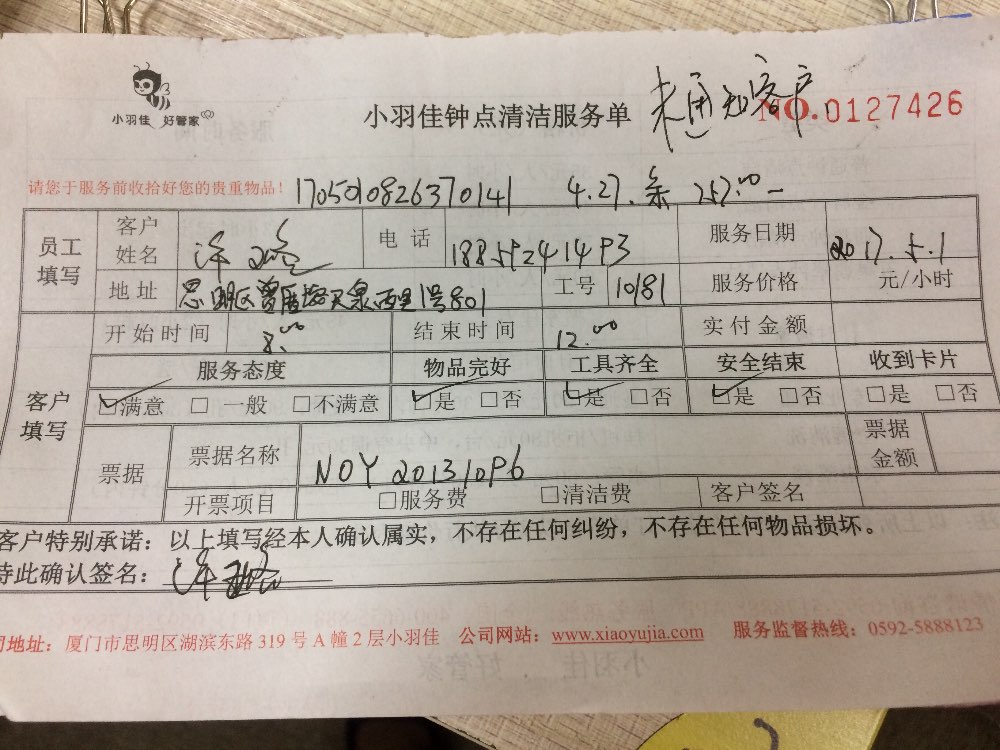 小羽佳 好管家
小羽佳钟点清洁服务单 未通知客户 NO.0127426
请您于服务前收拾好您的贵重物品! 1705010826370141 4.27. 257.00
员工填写 客户姓名 电话 服务日期 2017.5.1
地址 思明区 西里1号801 工号 10181 服务价格 元/小时
开始时间 8:00 结束时间 12:00 实付金额
客户填写 服务态度 物品完好 工具齐全 安全结束 收到卡片
☑满意 □一般 □不满意 ☑是 □否 ☑是 □否 ☑是 □否 □是 □否
票据 票据名称 NOY 20131096 票据金额
开票项目 □服务费 □清洁费 客户签名
客户特别承诺：以上填写经本人确认属实，不存在任何纠纷，不存在任何物品损坏。
特此确认签名：
司地址：厦门市思明区湖滨东路 319 号 A 幢 2 层小羽佳 公司网站：www.xiaoyujia.com 服务监督热线：0592-5888123